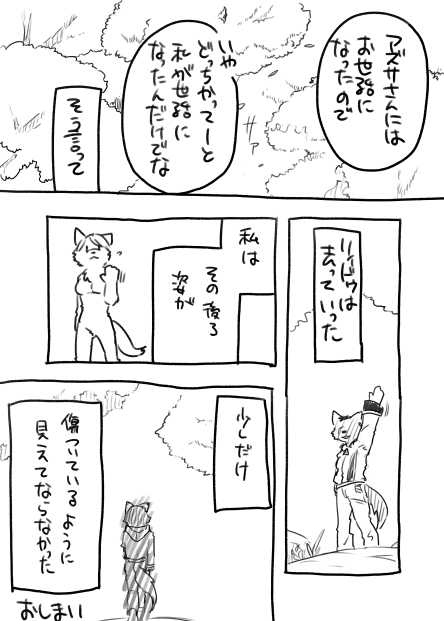 アズサさんには
お世話に
なったので
いや
どっちかってーと
私が世話に
なったんだけでな
ザァ
そう言って
リィドゥは
去っていった
私は
その後ろ
姿が
少しだけ
傷ついているように
見えてならなかった
おしまい